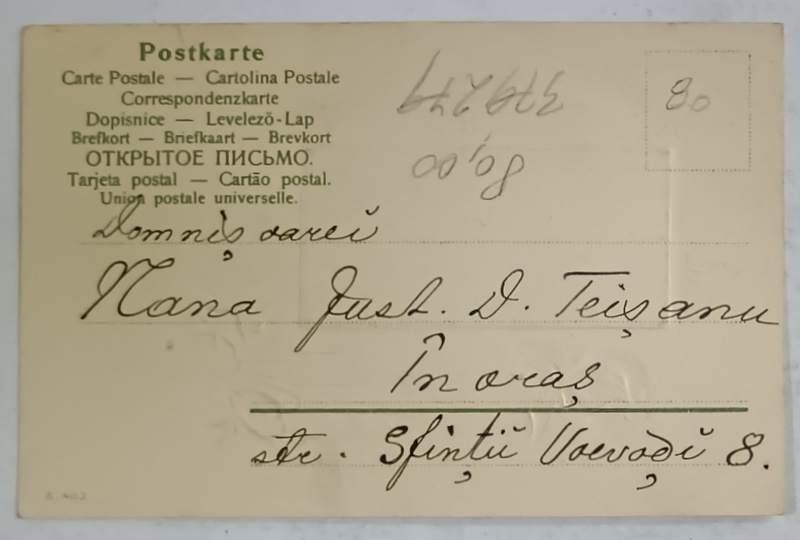 Postkarte
Carte Postale — Cartolina Postale
Correspondenzkarte
Dopisnice — Levelező-Lap
Brefkort — Briefkaart — Brevkort
ОТКРЫТОЕ ПИСЬМО.
Tarjeta postal — Cartão postal.
Union postale universelle.
80
80,00
Domnișoarei
Nana Just. D. Teișanu
În oraș
str. Sfinții Voevodĭ 8.